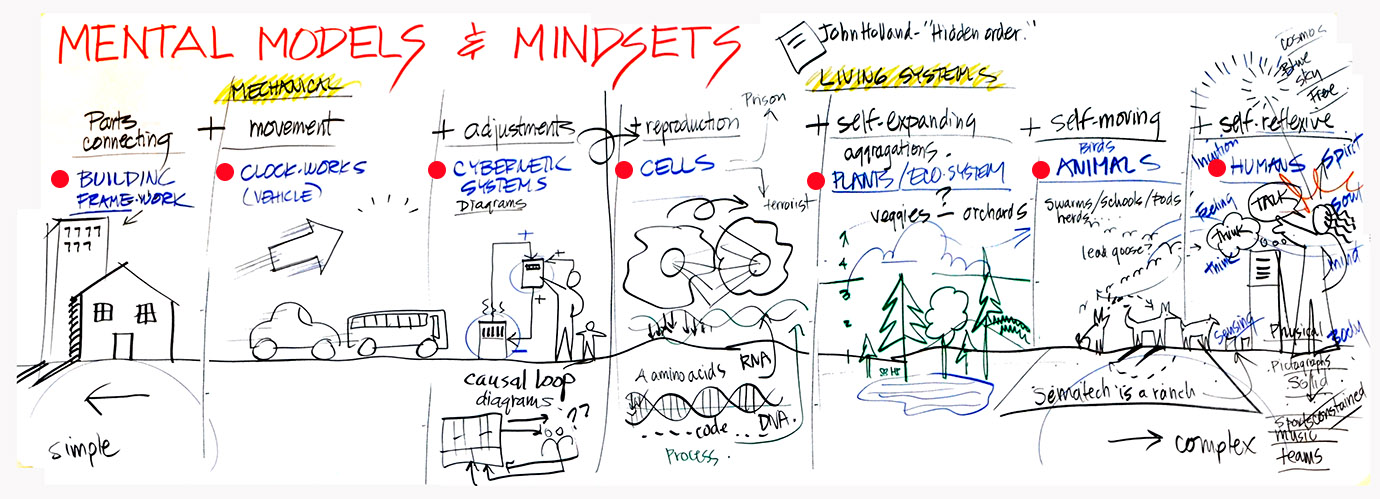 MENTAL MODELS & MINDSETS
John Holland - "Hidden order."
MECHANICAL
LIVING SYSTEMS
Parts
connecting
BUILDING
FRAME-WORK
simple
+ movement
CLOCK-WORKS
(VEHICLE)
+ adjustments
CYBERNETIC
SYSTEMS
Diagrams
+
+
causal loop
diagrams
??
+ reproduction
CELLS
Prison
terrorist
A amino acids
RNA
DNA.
code
Process.
+ self-expanding
aggragations.
PLANTS/ECO-SYSTEM
?
veggies - orchards
4
3
2
1
+ self-moving
Birds
ANIMALS
swarms/schools/pods
herds
lead goose?
Sematech is a ranch
complex
cosmos
Blue
sky
Free
+ self-reflexive
Intuition
HUMANS
Spirit
feeling
TALK
Soul
think
think
mind
sensing
Physical
Body
Pictographs
Solid
constrained
sports
music
teams